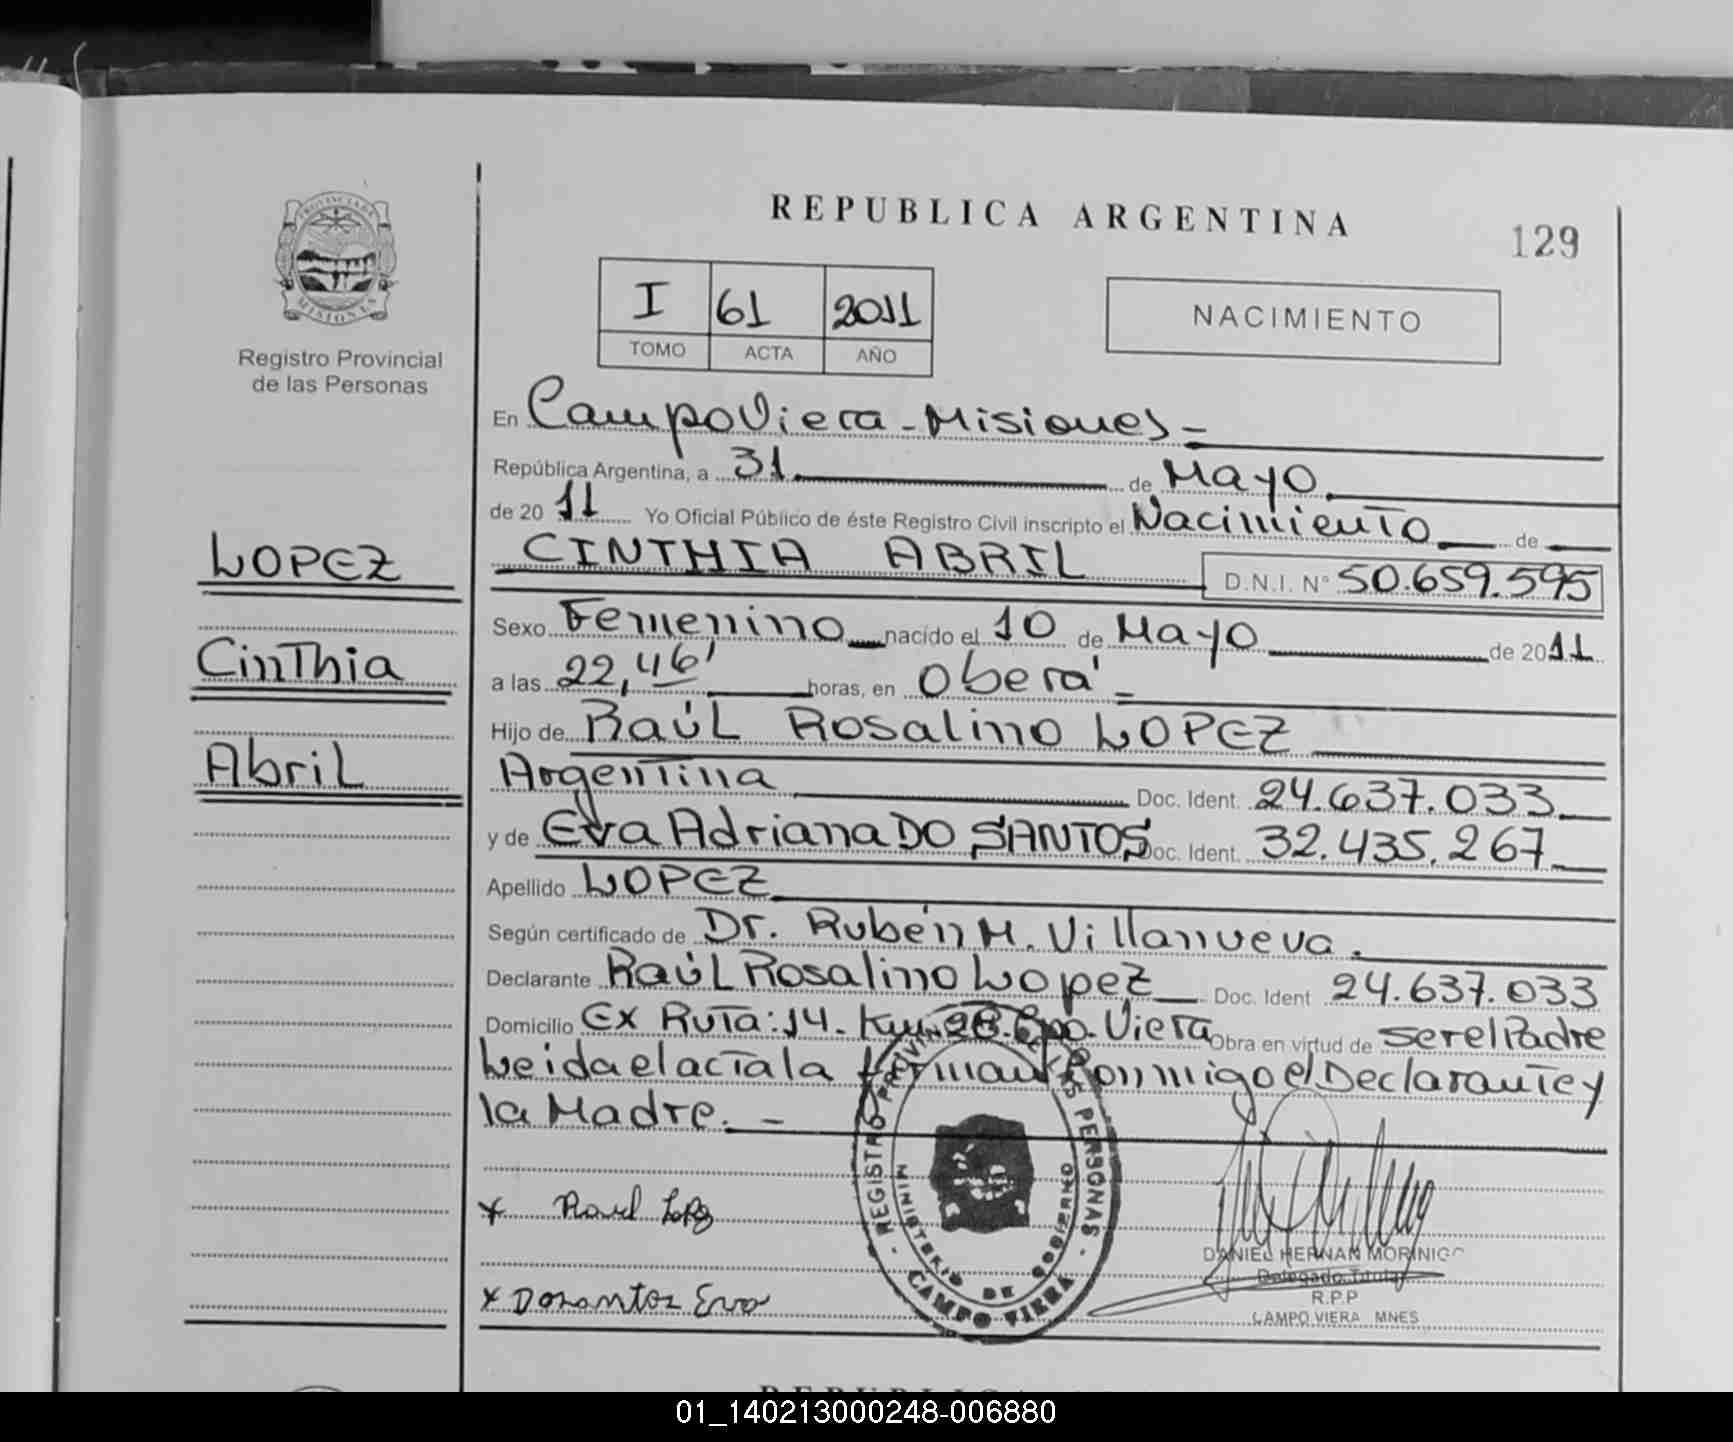 REPUBLICA ARGENTINA
129
PROVINCIA DE MISIONES
Registro Provincial
de las Personas
I 61 2011
TOMO ACTA AÑO
NACIMIENTO
En Campo Viera - Misiones -
República Argentina, a 31 de Mayo
de 2011 Yo Oficial Público de éste Registro Civil inscripto el Nacimiento de
LOPEZ
CINTHIA ABRIL D.N.I. Nº 50.659.595
Sexo Femenino nacido el 10 de Mayo de 2011
Cinthia
a las 22,46' horas, en Oberá -
Hijo de Raúl Rosalino LOPEZ
Abril
Argentina Doc. Ident. 24.637.033
y de Eva Adriana DO SANTOS Doc. Ident. 32.435.267
Apellido LOPEZ
Según certificado de Dr. Rubén M. Villanueva.
Declarante Raúl Rosalino Lopez Doc. Ident 24.637.033
Domicilio Ex Ruta: 14. Km. 28. Cpo. Viera Obra en virtud de ser el Padre
Leida el acta la firman conmigo el Declarante y
la Madre. -
REGISTRO PROVINCIAL DE LAS PERSONAS
MINISTERIO DE GOBIERNO
CAMPO VIERA
x Raul Lopez
DANIEL HERNAN MORINIGO
Delegado Titular
R.P.P
CAMPO VIERA MNES
x Dosantos Eva
01_140213000248-006880